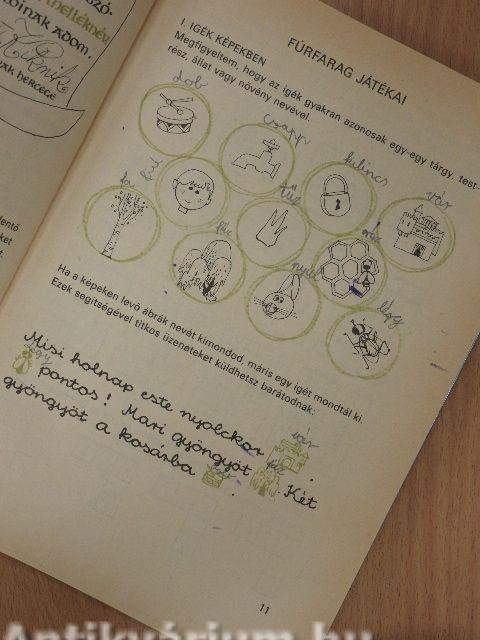 SZÓ-
AMELLÉKNÉV
ADOM.
HERCEGE
FÚRFARAG JÁTÉKAI
I. IGÉK KÉPEKBEN
Megfigyeltem, hogy az igék gyakran azonosak egy-egy tárgy, test-
rész, állat vagy növény nevével.
dob
csapp
kulincs
vár
fül
légy
nyúl
Ha a képeken levő ábrák nevét kimondod, máris egy igét mondtál ki.
Ezek segítségével titkos üzeneteket küldhetsz barátodnak:
Misi holnap este nyolckor vár.
légy pontos! Mari gyöngyöt fűz. Két
gyöngyöt a kosárba
11
Antikvárium.hu